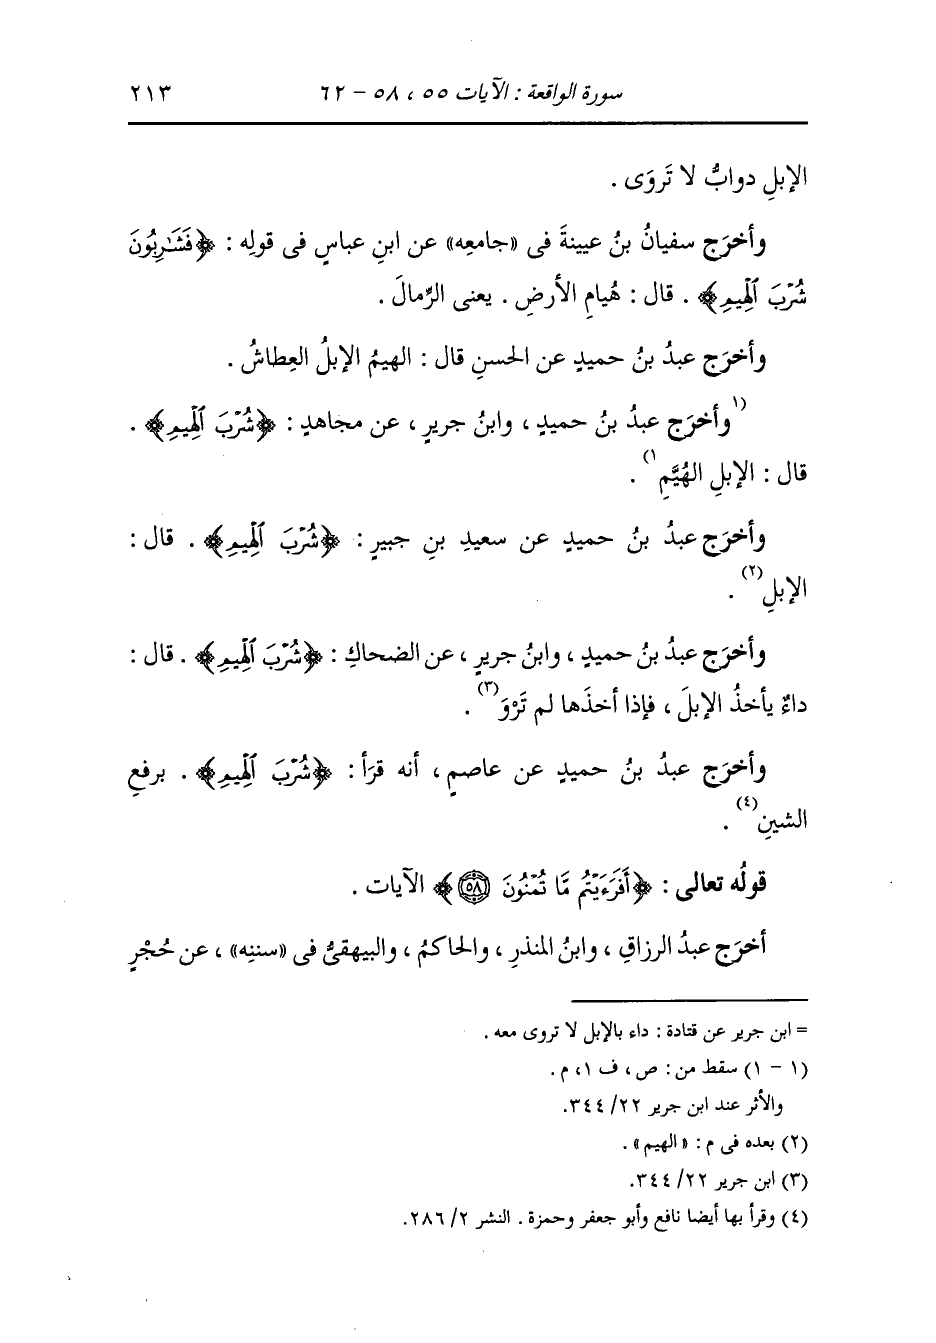 سورة الواقعة : الآيات ٥٥ ، ٥٨ – ٦٢ ٢١٣
الإبلِ دوابُّ لا تَروَى .
وأخرَج سفيانُ بنُ عيينةَ فى «جامعِه» عن ابنِ عباسٍ فى قولِه : ﴿فَشَـٰرِبُونَ
شُرْبَ ٱلْهِيمِ﴾ . قال : هُيامِ الأرضِ . يعنى الرِّمالَ .
وأخرَج عبدُ بنُ حميدٍ عن الحسنِ قال : الهيمُ الإبلُ العِطاشُ .
(١وأخرَج عبدُ بنُ حميدٍ ، وابنُ جريرٍ ، عن مجاهدٍ : ﴿شُرْبَ ٱلْهِيمِ﴾ .
قال : الإبلِ الهُيَّمِ ١) .
وأخرَج عبدُ بنُ حميدٍ عن سعيدِ بنِ جبيرٍ : ﴿شُرْبَ ٱلْهِيمِ﴾ . قال :
الإبلِ (٢) .
وأخرَج عبدُ بنُ حميدٍ ، وابنُ جريرٍ ، عن الضحاكِ : ﴿شُرْبَ ٱلْهِيمِ﴾ . قال :
داءٌ يأخذُ الإبلَ ، فإذا أخذَها لم تَرْوَ (٣) .
وأخرَج عبدُ بنُ حميدٍ عن عاصمٍ ، أنه قرَأ : ﴿شُرْبَ ٱلْهِيمِ﴾ . برفعِ
الشينِ (٤) .
قولُه تعالى : ﴿أَفَرَءَيْتُم مَّا تُمْنُونَ ٥٨﴾ الآيات .
أخرَج عبدُ الرزاقِ ، وابنُ المنذرِ ، والحاكمُ ، والبيهقىُّ فى «سننِه» ، عن حُجْرٍ
= ابن جرير عن قتادة : داء بالإبل لا تروى معه .
(١ - ١) سقط من : ص ، ف ١، م .
والأثر عند ابن جرير ٢٢/ ٣٤٤.
(٢) بعده فى م : « الهيم» .
(٣) ابن جرير ٢٢/ ٣٤٤.
(٤) وقرأ بها أيضا نافع وأبو جعفر وحمزة . النشر ٢/ ٢٨٦.